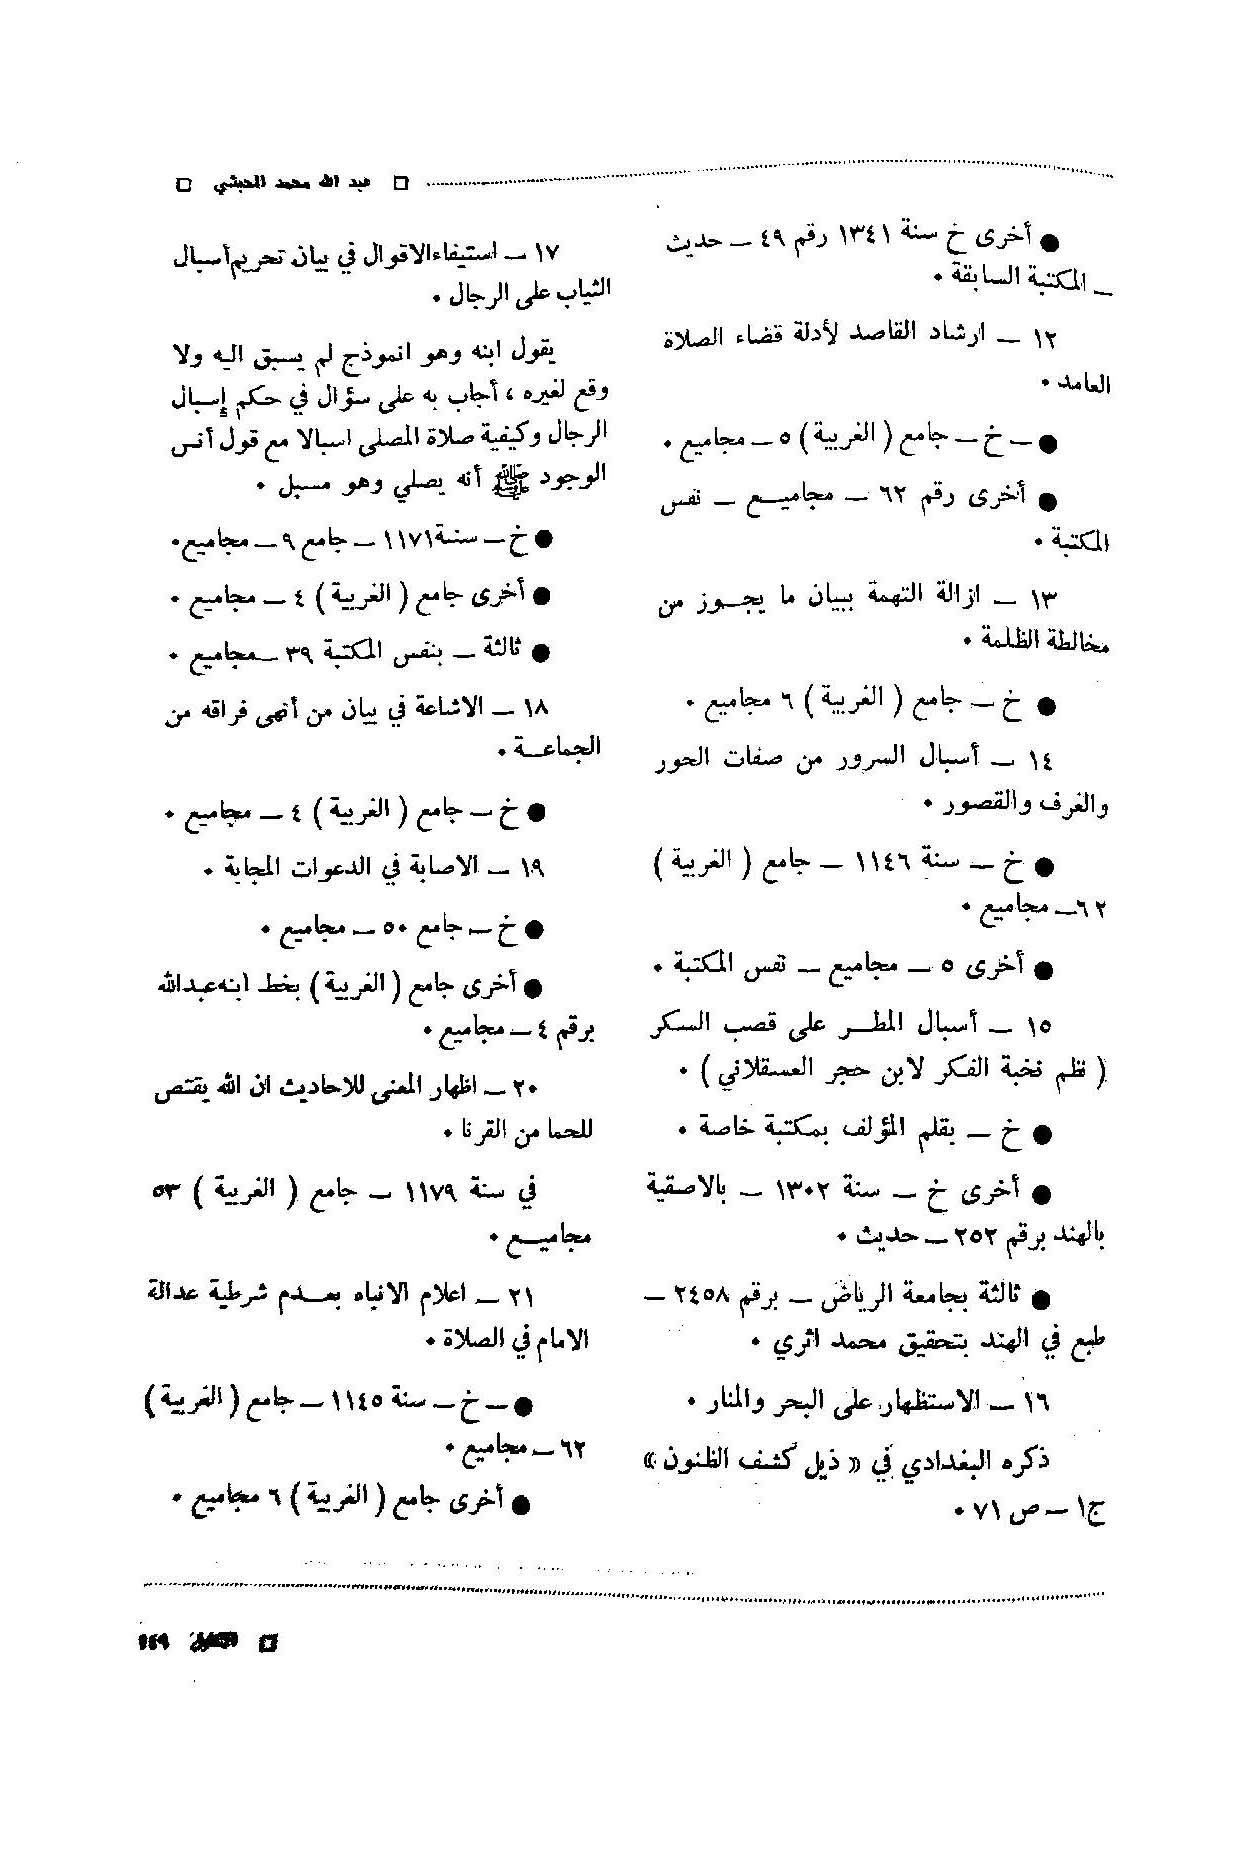 □ عبد الله محمد الحبشي □
● أخرى خ سنة ١٣٤١ رقم ٤٩ – حديث
– المكتبة السابقة ٠
١٢ – ارشاد القاصد لأدلة قضاء الصلاة
العامد ٠
● – خ – جامع ( الغربية ) ٥ – مجاميع ٠
● أخرى رقم ٦٢ – مجاميع – نفس
المكتبة ٠
١٣ – ازالة التهمة ببيان ما يجوز من
مخالطة الظلمة ٠
● خ – جامع ( الغربية ) ٦ مجاميع ٠
١٤ – أسبال السرور من صفات الحور
والغرف والقصور ٠
● خ – سنة ١١٤٦ – جامع ( الغربية )
٦٢– مجاميع ٠
● أخرى ٥ – مجاميع – نفس المكتبة ٠
١٥ – أسبال المطر على قصب السكر
( نظم نخبة الفكر لابن حجر العسقلاني ) ٠
● خ – بقلم المؤلف بمكتبة خاصة ٠
● أخرى خ – سنة ١٣٠٢ – بالاصقية
بالهند برقم ٢٥٢ – حديث ٠
● ثالثة بجامعة الرياض – برقم ٢٤٥٨ –
طبع في الهند بتحقيق محمد اثري ٠
١٦ – الاستظهار على البحر والمنار ٠
ذكره البغدادي في « ذيل كشف الظنون »
ج١ – ص ٧١ ٠
١٧ – استيفاء الاقوال في بيان تحريم أسبال
الثياب على الرجال ٠
يقول ابنه وهو انموذج لم يسبق اليه ولا
وقع لغيره ، أجاب به على سؤال في حكم إسبال
الرجال وكيفية صلاة المصلى اسبالا مع قول أنس
الوجود ﷺ أنه يصلي وهو مسبل ٠
● خ – سنة ١١٧١ – جامع ٩ – مجاميع ٠
● أخرى جامع ( الغربية ) ٤ – مجاميع ٠
● ثالثة – بنفس المكتبة ٣٩ – مجاميع ٠
١٨ – الاشاعة في بيان من أنهى فراقه من
الجماعة ٠
● خ – جامع ( الغربية ) ٤ – مجاميع ٠
١٩ – الاصابة في الدعوات المجابة ٠
● خ – جامع ٥٠ – مجاميع ٠
● أخرى جامع ( الغربية ) بخط ابنه عبدالله
برقم ٤ – مجاميع ٠
٢٠ – اظهار المعنى للاحاديث ان الله يقتص
للحما من القرنا ٠
في سنة ١١٧٩ – جامع ( الغربية ) ٥٣
مجاميع ٠
٢١ – اعلام الانباه بعدم شرطية عدالة
الامام في الصلاة ٠
● – خ – سنة ١١٤٥ – جامع ( الغربية )
٦٢ – مجاميع ٠
● أخرى جامع ( الغربية ) ٦ مجاميع ٠